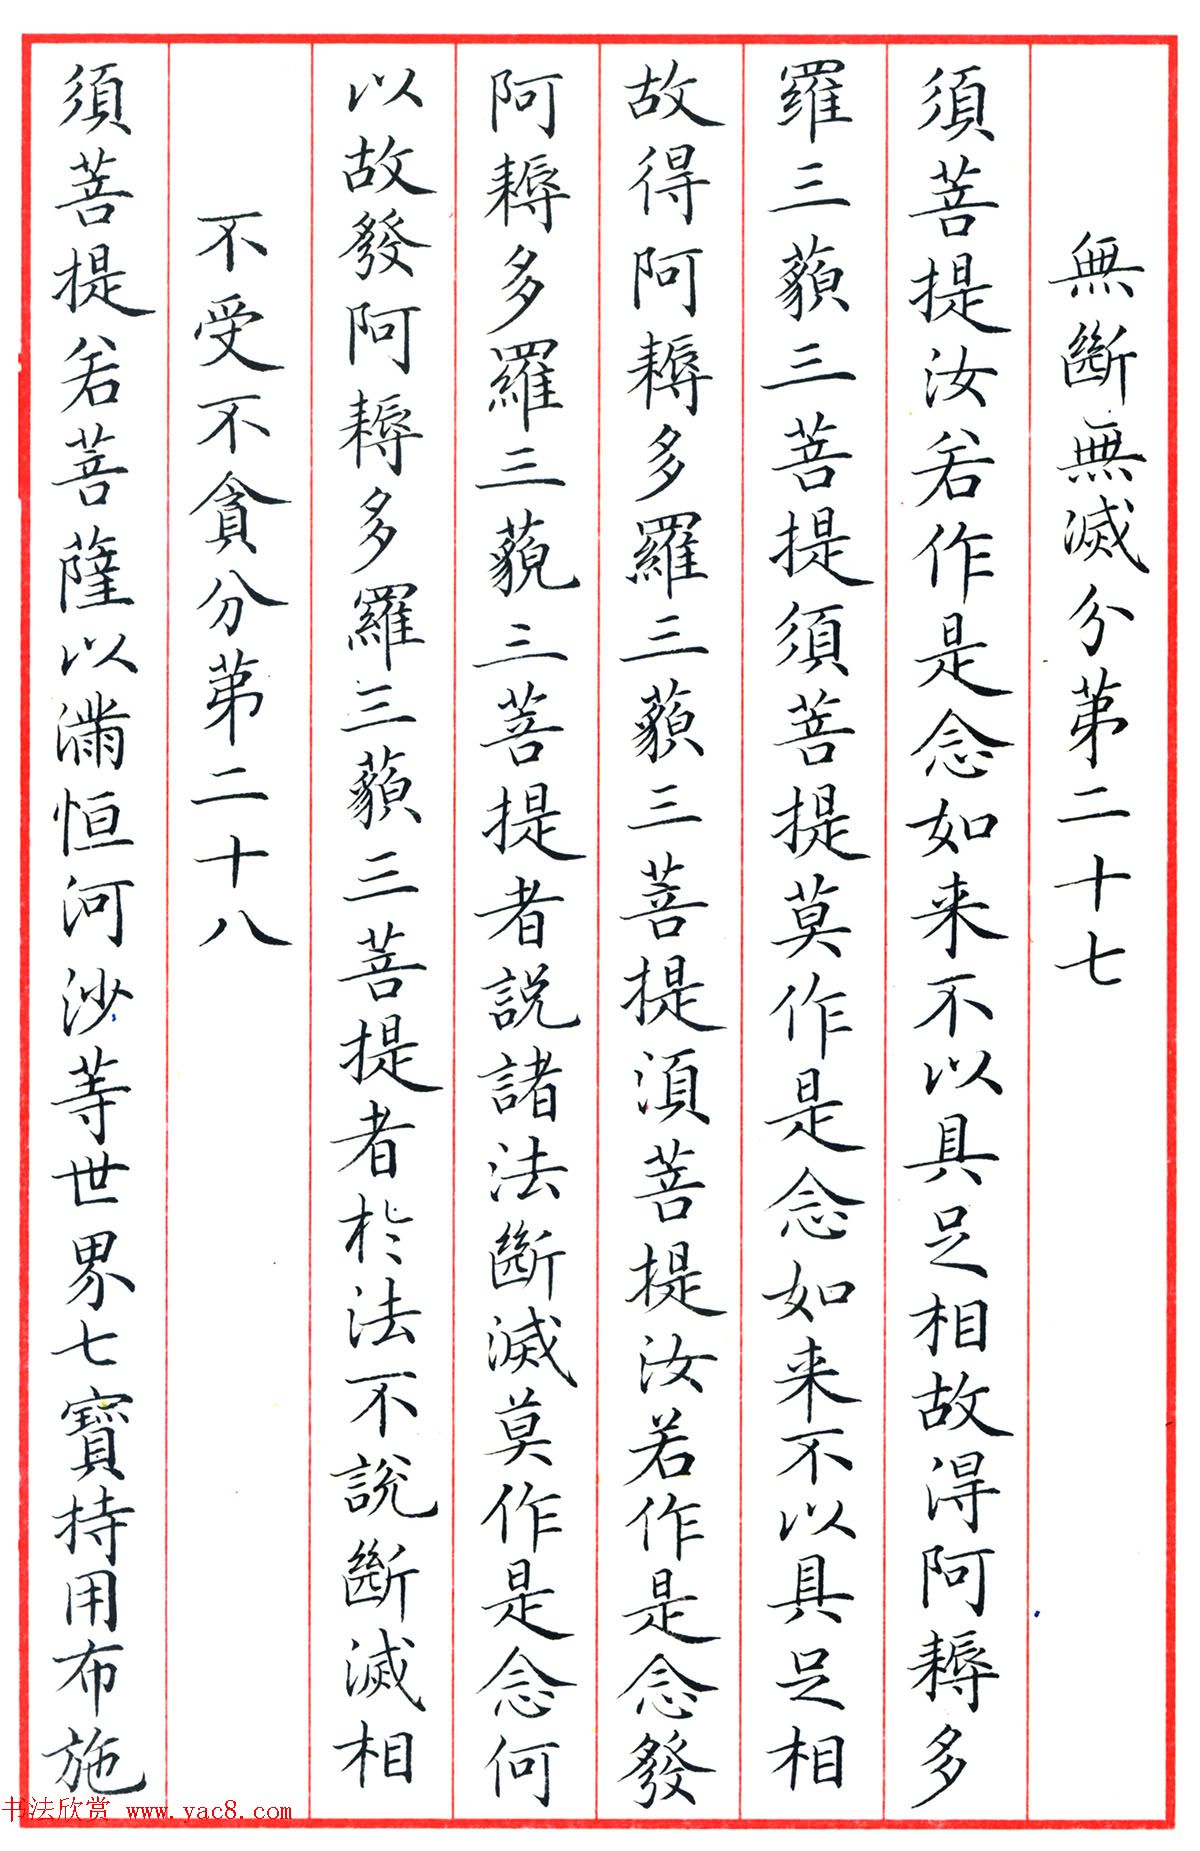 無斷無滅分第二十七
須菩提汝若作是念如来不以具足相故得阿耨多
羅三藐三菩提須菩提莫作是念如来不以具足相
故得阿耨多羅三藐三菩提須菩提汝若作是念發
阿耨多羅三藐三菩提者說諸法斷滅莫作是念何
以故發阿耨多羅三藐三菩提者於法不說斷滅相
不受不貪分第二十八
須菩提若菩薩以滿恒河沙等世界七寶持用布施
书法欣赏 www.yac8.com